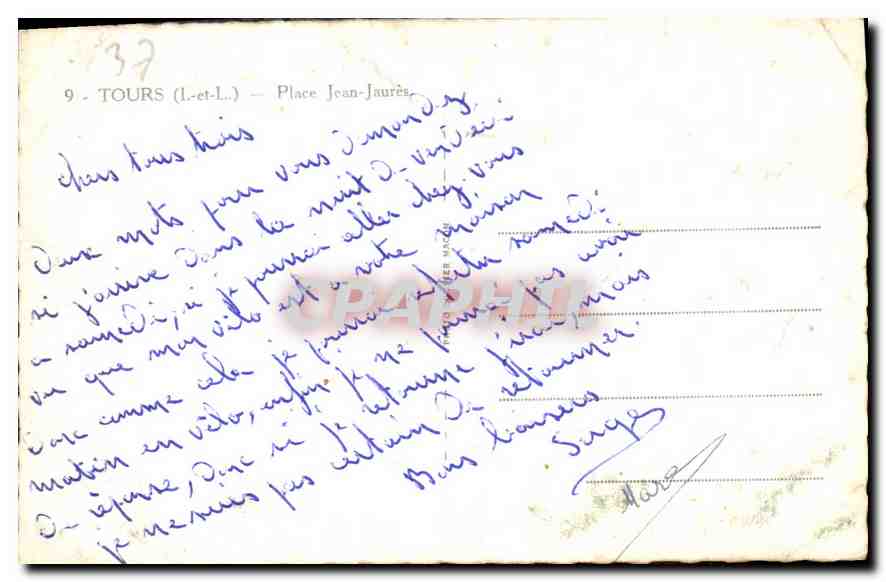 37
9 - TOURS (I.-et-L.) — Place Jean-Jaurès
Chers tous trois
Deux mots pour vous demandez
si j'arrive dans la nuit de vendredi
a samedi, si je pourrai aller chez vous
vu que mon vélo est a votre maison
Donc comme cela je pourrai samedi
matin en vélo, enfin je ne pourrai pas avoir
de réponse, donc si je retourne j'irai, mais
je ne suis pas certain de retourner.
Bons baisers
Serge
Marc
CPAPHIL
PHOTO MACON